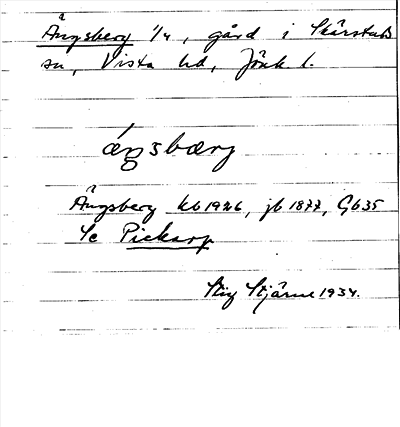 Ångsberg 1/4, gård i Skärstads
sn, Vista hd, Jönk l.
ángsbærg
Ångsberg kb 1926, jb 1877, Gb 35
Se Pickarp
Stig Stjärne 1934.